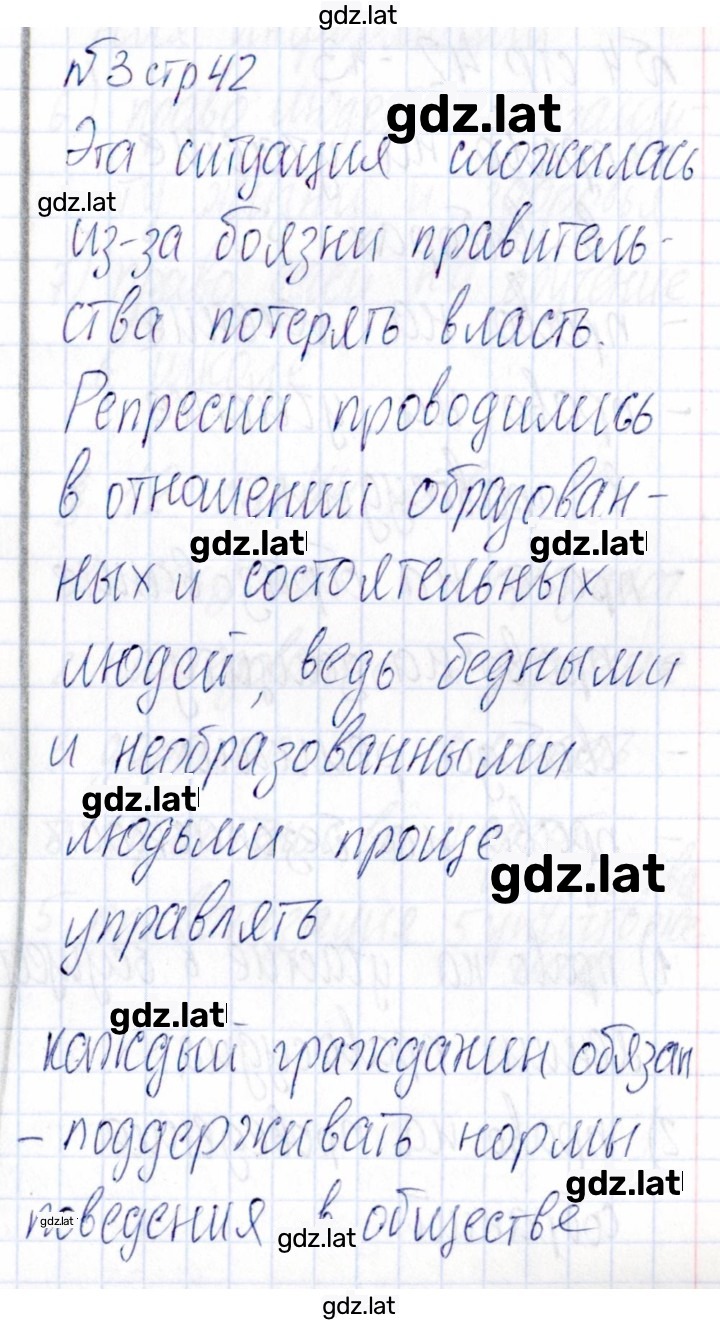 gdz.lat
№3 стр 42
gdz.lat
Эта ситуация сложилась
gdz.lat
из-за боязни правитель-
ства потерять власть.
Репресии проводились
в отношении образован-
gdz.lat gdz.lat
ных и состоятельных
людей, ведь бедными
и необразованными
gdz.lat
людьми проще
gdz.lat
управлять
gdz.lat
каждый гражданин обязан
- поддерживать нормы
gdz.lat
поведения в обществе
gdz.lat gdz.lat
gdz.lat